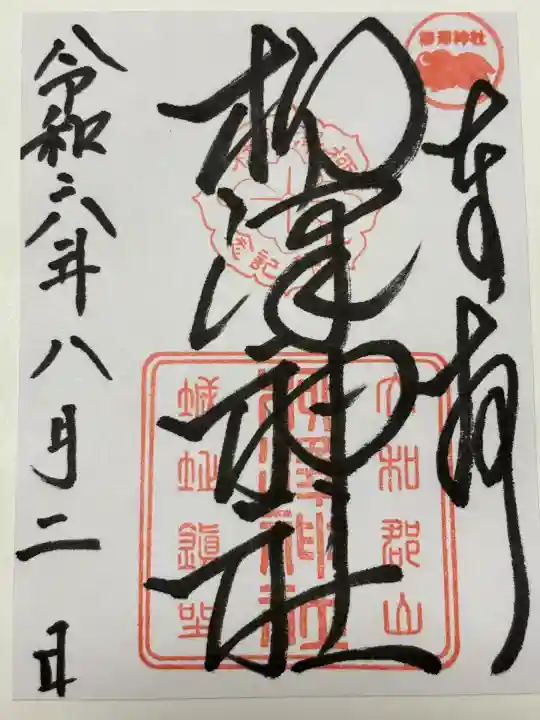 柳澤神社
奉拝
柳澤神社
大和郡山
柳澤神社
城址鎮坐
令和六年八月二日